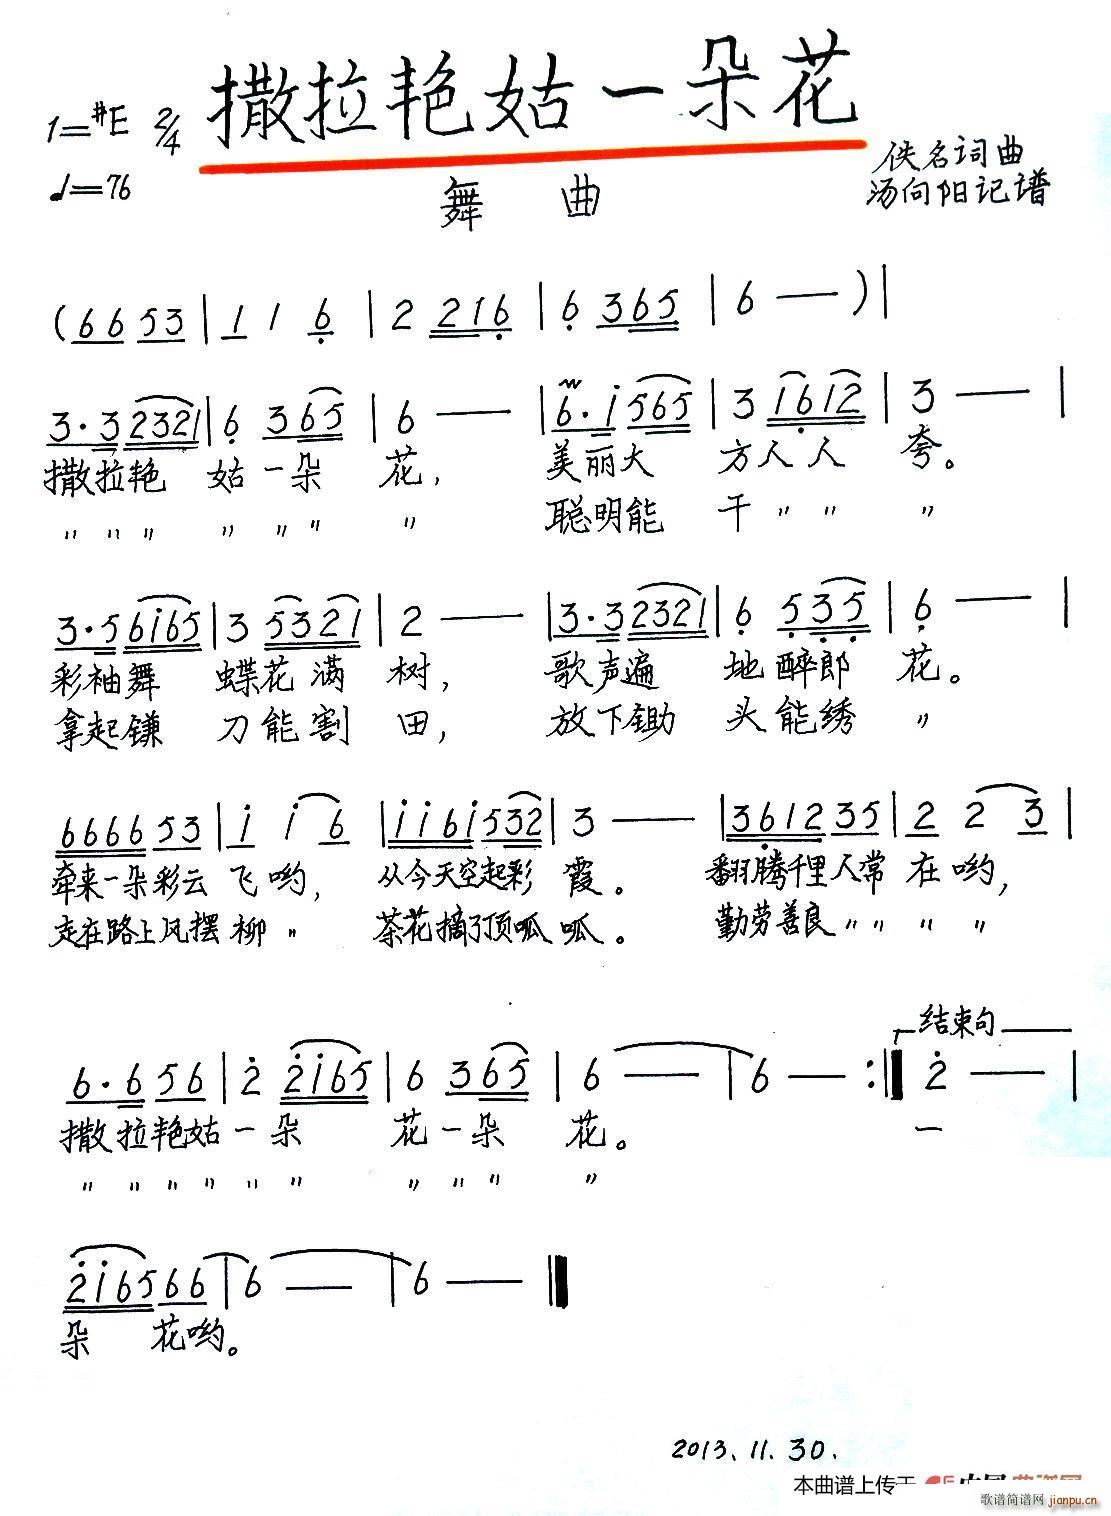 撒拉艳姑一朵花
1=#E 2/4
♩=76
舞 曲
佚名词曲
汤向阳记谱
(66 53 | 1 1 6 | 2 2216 | 6 365 | 6 — ) |
3·3 2321 | 6 365 | 6 — | 6·i 565 | 3 1612 | 3 — |
撒拉艳 姑一朵 花, 美丽大 方人人 夸。
〃 〃 〃 〃 〃 〃 〃 聪明能 干 〃 〃 〃
3·5 6i65 | 3 5321 | 2 — | 3·3 2321 | 6 535 | 6 — |
彩袖舞 蝶花满 树, 歌声遍 地醉郎 花。
拿起镰 刀能割 田, 放下锄 头能绣 〃
6666 53 | i i 6 | ii6i 532 | 3 — | 3612 35 | 2 2 3 |
牵来一朵彩云 飞哟, 从今天空起彩 霞。 翻腾千里人常 在哟,
走在路上风摆 柳 〃 茶花摘了顶呱 呱。 勤劳善良 〃 〃 〃 〃
结束句
6·6 56 | 2 2i65 | 6 365 | 6 — | 6 — :‖ 2 — |
撒拉艳姑一朵 花一朵 花。 一
〃 〃 〃 〃 〃 〃 〃 〃 〃 〃
2i65 66 | 6 — | 6 — ‖
朵 花哟。
2013.11.30.
本曲谱上传于
歌谱简谱网 jianpu.cn